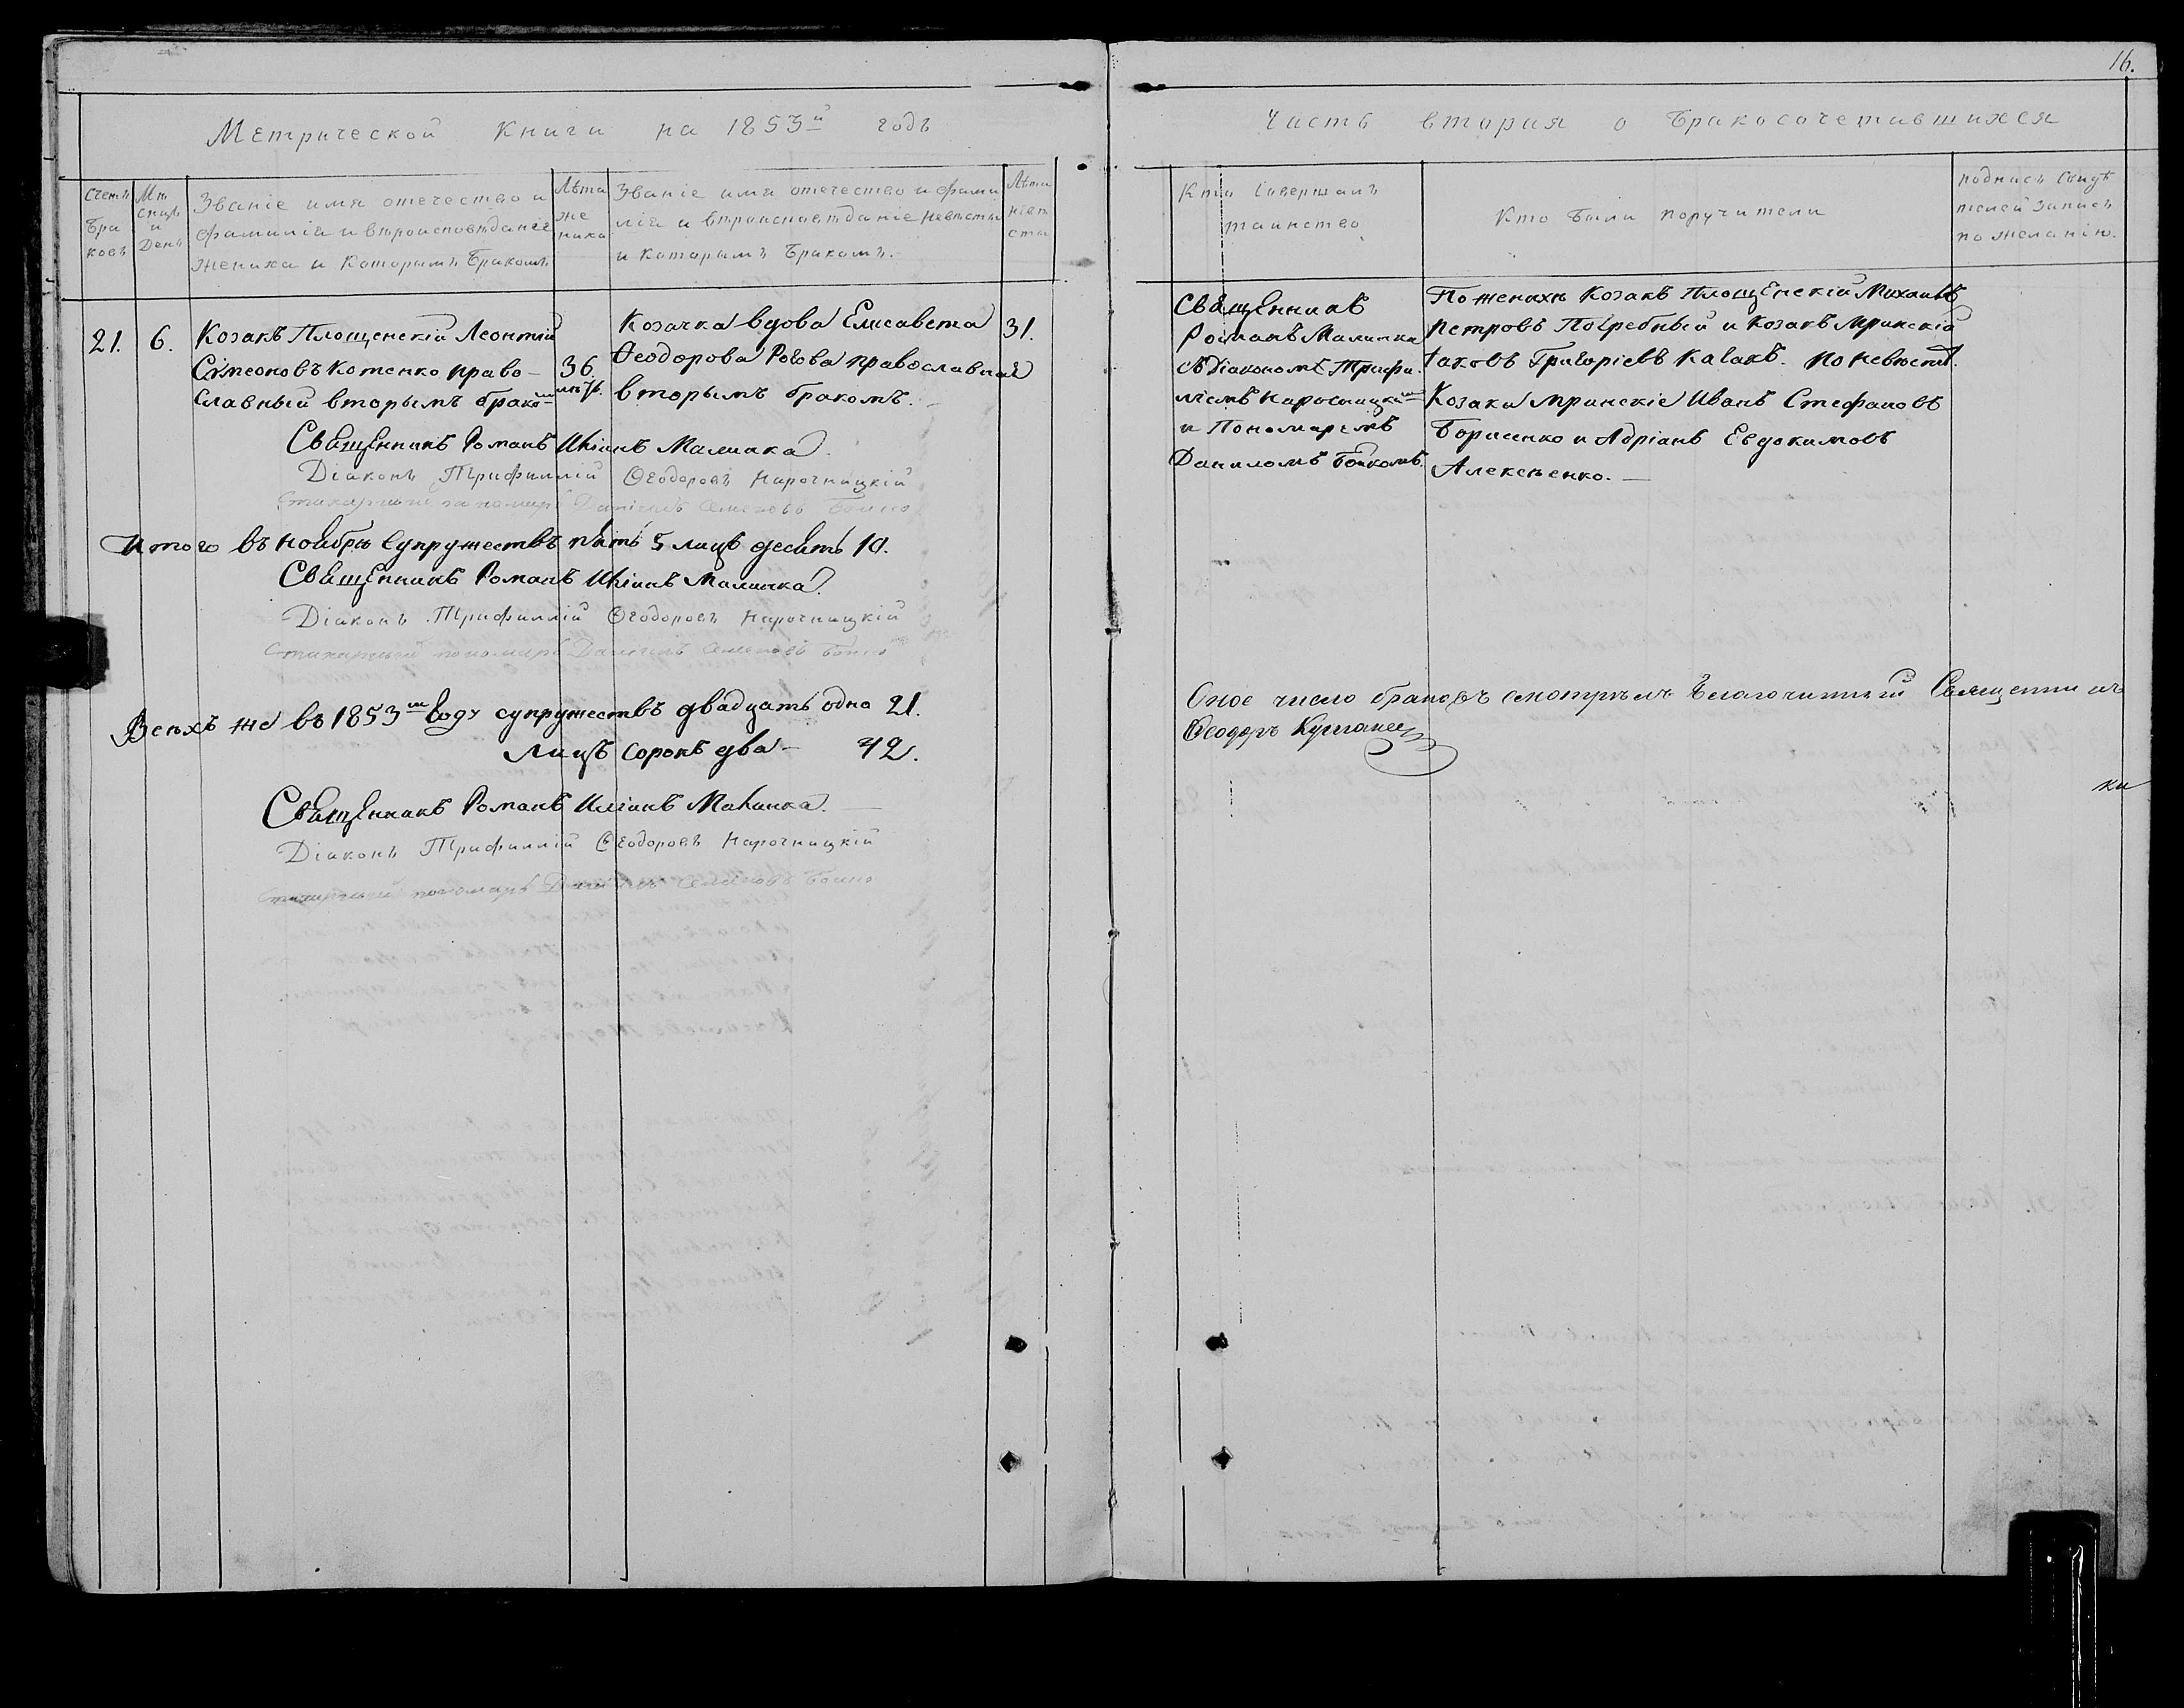 16.
Метрической Книги на 1853й годъ
Часть вторая о Бракосочетавшихся
Счетъ Браковъ
Мѣсяцъ и День
Званіе имя отечество и
фамилія и вѣроисповѣданіе
жениха и Которымъ Бракомъ
Лѣта
же
ниха
Званіе имя отечество и фами
лія и вѣроисповѣданіе невѣсты
и которымъ Бракомъ.
Лѣта
невѣ
сты
Кто Совершалъ
таинство
Кто были поручители
подпись Свидѣ
телей запись
по желанію.
21. 6.
Козакъ Площенскій Леонтій
Сѵмеоновъ Котенко право-
славный вторымъ бракомъ
36.
лѣтъ
Козачка вдова Елисавета
Ѳеодорова Рогова православная
вторымъ бракомъ.
31.
Священникъ
Романъ Малинка
съ діакономъ Трифи.
ліемъ Нарочницкимъ
и Пономаремъ
Даниломъ Бойкомъ.
По женихѣ Козакъ Площенскій Михаилъ
Петровъ Погребный и Козакъ Мринскій
Іаковъ Григоріевъ Калакъ. По невѣстѣ
Козаки Мринскіе Иванъ Стефановъ
Борисенко и Адріанъ Евдокимовъ
Алексѣенко.
Священникъ Романъ Иліинъ Малинка.
Діаконъ Трифиллій Ѳеодоровъ Нарочницкій
Стихарный пономарь Даніилъ Семеновъ Бойко
Итого въ ноябрѣ супружествъ пять 5 лицъ десять 10.
Священникъ Романъ Иліинъ Малинка.
Діаконъ Трифиллій Ѳеодоровъ Нарочницкій
Стихарный пономарь Даніилъ Семеновъ Бойко
Всѣхъ же въ 1853мъ году супружествъ двадцать одно 21.
Лицъ сорокъ два - 42.
Священникъ Романъ Иліинъ Малинка.
Діаконъ Трифиллій Ѳеодоровъ Нарочницкій
Стихарный пономарь Даніилъ Семеновъ Бойко
Оное число браковъ смотрѣлъ Благочинный Священникъ
Ѳеодоръ
ки